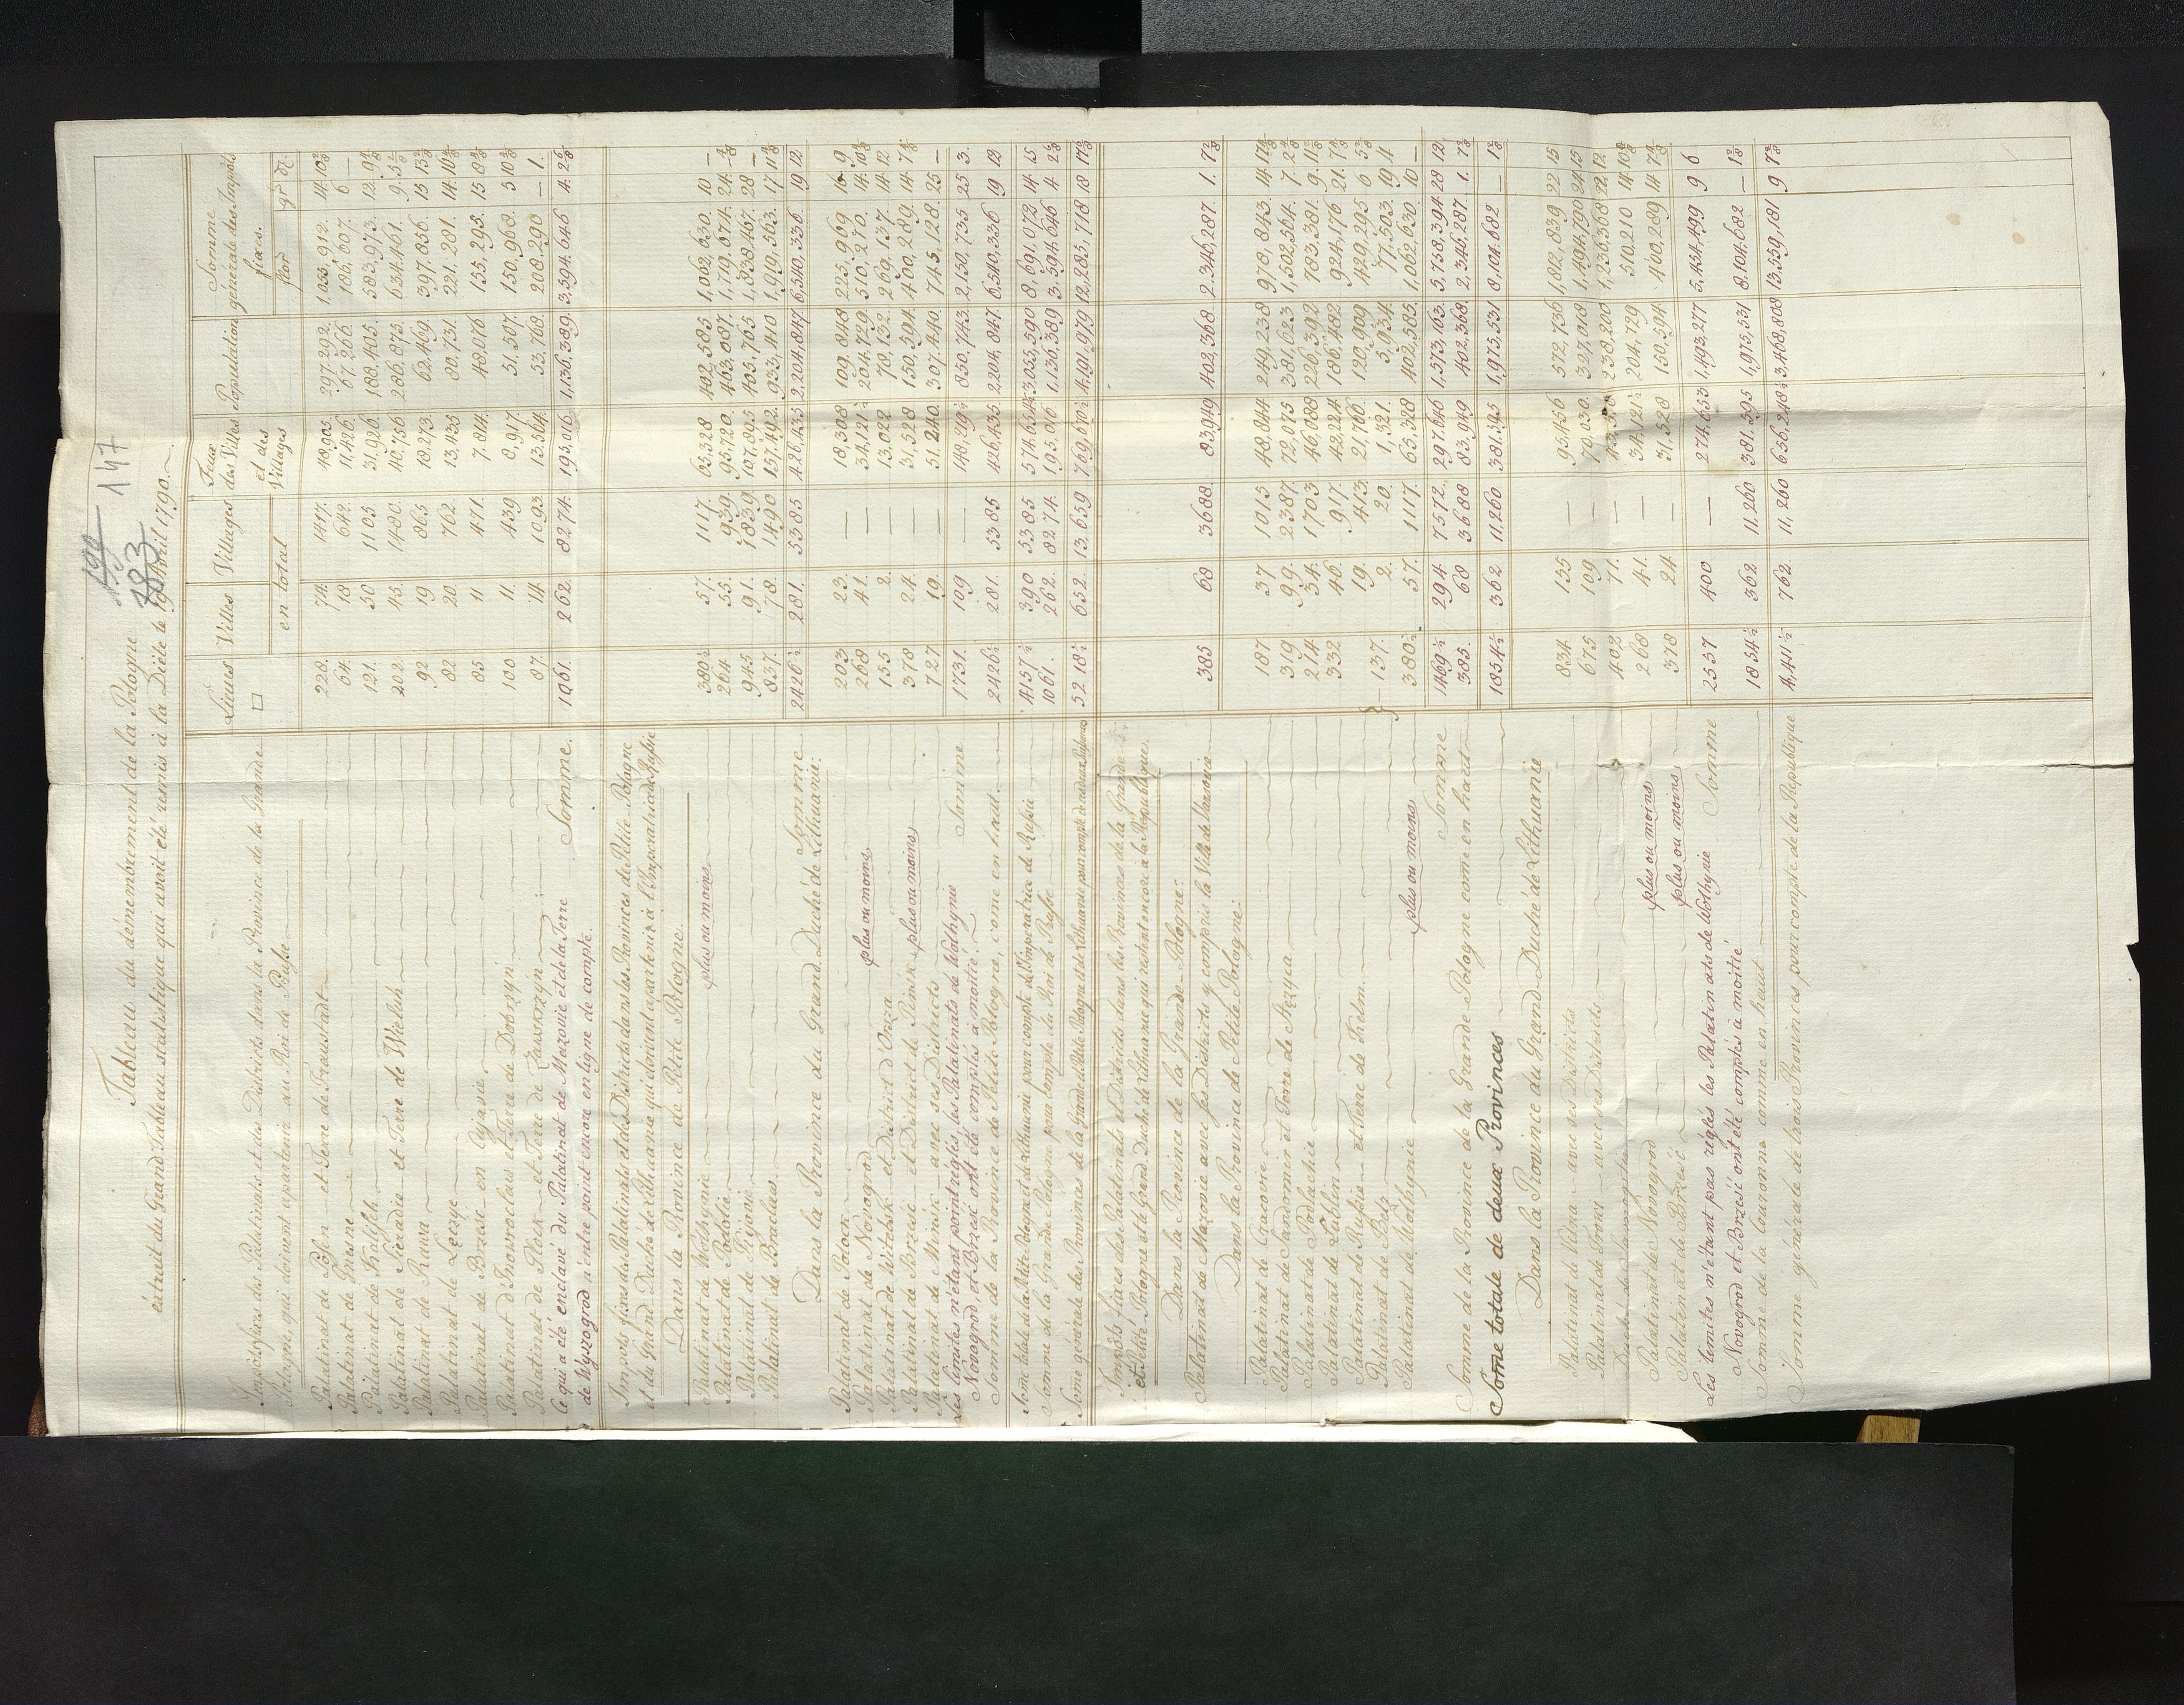 147
194
183
Tableau du démembrement de la Pologne
éxtrait du Grand Tableau statistique qui avoit été remis à la Diète le 19 Avril 1790.
Lieues □ Villes Villages Feux des Villes et des Villages Population Somme générale des Impôts fixes.
en total flor gr dr.
Impôts fixes des Palatinats et des Districts dans la Province de la Grande
Pologne, qui doivent apartenir au Roi de Prusse
Palatinat de Posen et Terre de Fraustadt 228. 74. 1417. 48,905. 297,292. 1,055,912. 14. 10 2/8
Palatinat de Gnesne 64. 18 642. 11,426. 67,266. 186,607. 6 —
Palatinat de Kalisch 121. 50 1105 31,926. 188,405. 583,973. 12.
Palatinat de Sieradie et Terre de Wieluń 202. 45. 1480. 40,756 286,875. 634,461. 9.
Palatinat de Rawa 92 19 865 18,273. 62,469. 397,856. 15
Palatinat de Lęczyc 82 20 762. 13,435 80,731 221,281. 14.
Palatinat de Brześć en Cujavie 85 11 471. 7,814. 48,076 155,295. 15
Palatinat d'Inowroclaw et Terre de Dobrzyń 100 11. 439 8,917. 51,507. 150,968. 5
Palatinat de Plock et Terre de Zawskrzyn 87. 14 1093. 13,564. 53,768. 208,290 — 1.
Somme. 1061. 262. 8274. 195,016 1,136,389. 3,594,646 4. 2 6/8
Ce qui a été enclavé du Palatinat de Mazovie et de la Terre
de Wyszogrod n'entre point encore en ligne de compte.
Impots fixes des Palatinats et des Districts dans les Provinces de Petite Pologne
et du Grand Duché de Lithuanie qui doivent apartenir à l'Imperatrice de Russie
Dans la Province de Petite Pologne.
Palatinat de Wolhynie plus ou moins 380 1/2 57. 1117. 65,328 402,585 1,062,630. 10 —
Palatinat de Podolie 264. 55. 939. 95,720. 463,087. 1,719,674. 24.
Palatinat de Kijovie 945 91. 1839 107,895 405,765 1,838,467. 28 —
Palatinat de Braclaw 837. 78. 1490 157,492. 933,410 1,919,563. 17
Somme 2426 1/2 281. 5385 426,435 2,204,847 6,540,336. 19 12
Dans la Province du Grand Duché de Lithuanie:
Palatinat de Polock 203 23. — 18,308 109,848 225,969 16 9
Palatinat de Novogrod plus ou moins 268 41. — 34,121 1/2 204,729 510,270. 14.
Palatinat de Witebsk et District d'Orsza 155 2. — 13,022 78,132. 269,137. 14. 12
Palatinat de Brześć et District de Pinsk plus ou moins 378 24. — 31,528 150,594. 400,289. 14.
Palatinat de Minsk avec ses Districts 727 19. — 51,240. 307,440. 745,128. 25 —
Les limites n'étant point réglés, les Palatinats de Wolhynie Somme 1731. 109 — 148,219 1/2 850,743. 2,150,735 25 3.
Novogrod et Brześć ont été comptés à moitié.
Somme de la Province de Petite Pologne, come en haut 2426 1/2 281. 5385 426,435 2,204,847. 6,540,336 19 12
Some totale de la Petite Pologne et de Lithuanie pour compte de l'Imperatrice de Russie 4157 1/2 390 5385 574,654 1/2 3,055,590 8,691,072 14. 15
Somme de la Grande Pologne pour compte du Roi de Prusse 1061. 262. 8274. 195,016 1,136,389 3,594,646 4
Some generale des Provinces de la Grande et Petite Pologne et de Lithuanie 5218 1/2 652. 13,659 769,670 1/2 4,191,979 12,285,718 18
Impots fixes des Palatinats et Districts dans les Provinces de la Grande
et Petite Pologne et le Grand Duché de Lithuanie qui restent encore à la République.
Dans la Province de la Grande-Pologne:
Palatinat de Mazovie avec ses Districts y compris la Ville de Varsovie 385 68 3688. 83,949 402,368. 2,346,287. 1. 7 2/8
Dans la Province de Petite Pologne:
Palatinat de Cracovie 187 37 1015 48,844 249,238 978,843. 14.
Palatinat de Sandomir et Terre de Stężyca 319 99. 2387. 72,075 381,623 1,502,564. 7.
Palatinat de Podlachie 214 34. 1703 46,088 226,392 783,381. 9.
Palatinat de Lublin 332 46. 917. 42,224 186,482 924,176 21.
Palatinat de Russie et Terre de Chelm 19. 413. 21,766. 120,909 429,295 6
Palatinat de Bełz 137. 2. 20. 1,321. 5,934. 77,503. 19 4
Palatinat de Wolhynie plus ou moins 380 1/2 57. 1117. 65,328 402,585. 1,062,630. 10 —
Somme 1469 1/2 294 7572. 297,646 1,573,163. 5,758,394 28 12.
Somme de la Province de la Grande Pologne come en haut 385. 68 3688 83,949 402,368. 2,346,287. 1.
Some totale de deux Provinces 1854 1/2 362 11,260 381,595 1,975,531 8,104,682 —
Dans la Province du Grand Duché de Lithuanie
Palatinat de Vilna avec ses Districts 834 155 — 95,456 572,736 1,812,839 22 15
Palatinat de Troki avec ses Districts 675 109 — 70,030. 327,018 1,494,790 24 15
402 71. — 238,200 1,236,368 22 12.
Palatinat de Novogrod plus ou moins 268 41. — 34,121 1/2 204,729 510,210 14
Palatinat de Brześć plus ou moins 378 24 — 31,528 150,594 400,289 14
Les limites n'étant pas réglés les Palatinats de Wolhynie Somme 2557 400 — 274,653 1,493,277 5,454,499 9 6
Novogrod et Brześć ont été comptés à moitié
Somme de la Couronne comme en haut 1854 1/2 362 11,260 381,595 1,975,531 8,104,682 —
Somme générale de trois Provinces pour compte de la République 4,411 1/2 762. 11,260 656,248 1/2 3,468,808 13,559,181 9